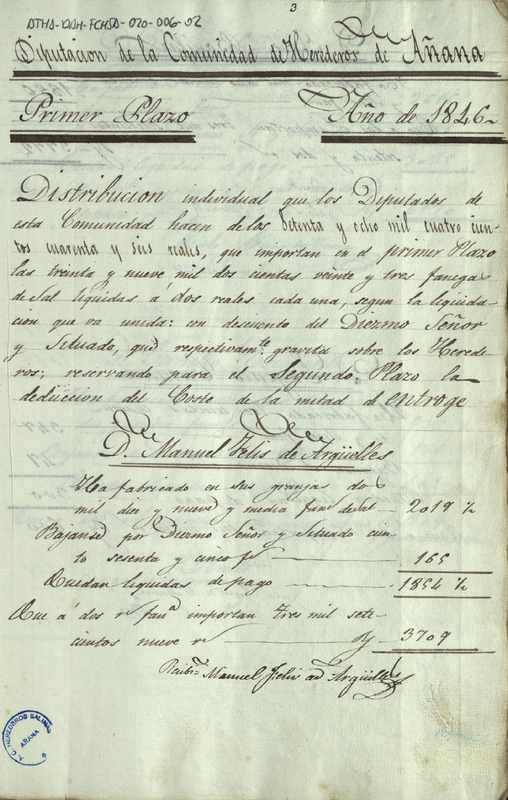 3
ATHA-DAH-FCHSA-020-006-02
Diputacion de la Comunidad de Herederos de Añana
Primer Plazo Año de 1846
Distribucion individual que los Diputados de
esta Comunidad hacen de los Setenta y ocho mil cuatro cien-
tos cuarenta y seis reales, que importan en el primer Plazo
las treinta y nueve mil dos cientas veinte y tres fanegas
de Sal liquidas á dos reales cada una, segun la liquida-
cion que va unida: con descuento del Diezmo Señor
y Situado, que respectivamte. gravita sobre los Herede-
ros; reservando para el Segundo Plazo la
deduccion del Coste de la mitad de entroge
D. Manuel Felis de Argüelles
Ha fabricado en sus granjas dos
mil diez y nueve y media fans. de sal 2019 ½
Bajanse por Diezmo Señor y Situado cien-
to sesenta y cinco fs 165
Quedan liquidas de pago 1854 ½
Que a dos rs fana. importan tres mil sete-
cientos nueve rs 3709
Recibi Manuel Felis de Argüelles
A.C. HEREDEROS SALINAS
AÑANA